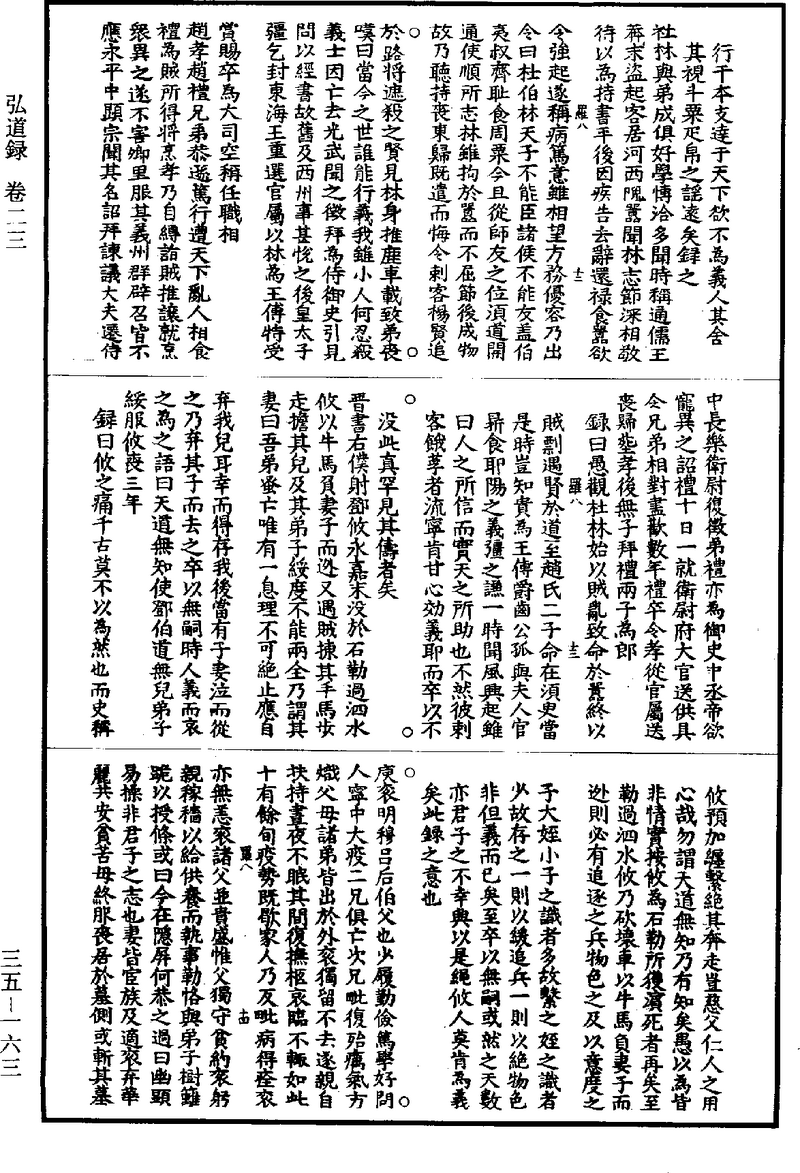 弘道録　卷二三
三五－一六三
行千本支達于天下欲不為義人其舍
其視斗粟疋帛之謡遠矣録之
杜林與弟成俱好學博洽多聞時稱通儒王
莽末盜起客居河西隗囂聞林志節深相敬
待以為持書平後因疾告去辭還禄食囂欲
羅八
十二
令強起遂稱病篤意雖相望方務優容乃出
令曰杜伯林天子不能臣諸侯不能友盖伯
夷叔齊耻食周粟今且從師友之位湏道開
通使順所志林雖拘於囂而不屈節後成物
故乃聽持喪東歸既遣而悔令刺客楊賢追
於路將遮殺之賢見林身推鹿車載致弟喪
嘆曰當今之世誰能行義我雖小人何忍殺
義士因亡去光武聞之徵拜為侍御史引見
問以經書故舊及西州事甚悅之後皇太子
疆乞封東海王重選官屬以林為王傅特受
賞賜卒為大司空稱任職相
趙孝趙禮兄弟恭遜篤行遭天下亂人相食
禮為賊所得將烹孝乃自縛詣賊推讓就烹
衆異之遂不害鄉里服其義州群辟召皆不
應永平中顯宗聞其名詔拜諫議大夫遷侍
中長樂衛尉復徵弟禮亦為御史中丞帝欲
寵異之詔禮十日一就衛尉府大官送供具
令兄弟相對盡歡數年禮卒令孝從官屬送
喪歸塟孝後無子拜禮兩子為郎
録曰愚觀杜林始以賊亂致命於囂終以
羅八
十三
賊剽遇賢於道至趙氏二子命在湏臾當
是時豈知貴為王傅爵齒公孤與夫人官
昇食耶陽之義彊之謙一時聞風興起雖
曰人之所信而實天之所助也不然彼刺
客餓莩者流寧肯甘心効義耶而卒以不
没此真罕見其儔者矣
晉書右僕射鄧攸永嘉末没於石勒過泗水
攸以牛馬負妻子而迯又遇賊掠其牛馬步
走擔其兒及其弟子綏度不能兩全乃謂其
妻曰吾弟蚤亡唯有一息理不可絶止應自
弃我兒耳幸而得存我後當有子妻泣而從
之乃弃其子而去之卒以無嗣時人義而哀
之為之語曰天道無知使鄧伯道無兒弟子
綏服攸喪三年
録曰攸之痛千古莫不以為然也而史稱
攸預加纒繫絶其奔走豈慈父仁人之用
心哉勿謂天道無知乃有知矣愚以為皆
非情實按攸為石勒所獲濵死者再矣至
勒過泗水攸乃砍壞車以牛馬負妻子而
迯則必有追逐之兵物色之及以意度之
子大姪小子之識者多故繫之姪之識者
少故存之一則以緩追兵一則以絶物色
非但義而已矣至卒以無嗣或然之天數
亦君子之不幸與以是繩攸人莫肯為義
矣此録之意也
庾衮明穆后伯父也少履勤儉篤學好問
人寧中大疫二兄俱亡次兄毗復殆癘氣方
熾父母諸弟皆出於外衮獨留不去遂親自
扶持晝夜不眠其間復撫柩哀臨不輟如此
十有餘旬疫勢既歇家人乃反毗病得痊衮
羅八
十四
亦無恙衮諸父並貴盛惟父獨守貧約衮躬
親稼穡以給供養而執事勤恪與弟子樹籬
跪以授條或曰今在隱屏何恭之過曰幽顯
易操非君子之志也妻皆官族及適衮弃華
麗共安貧苦母終服喪居於墓側或斬其墓